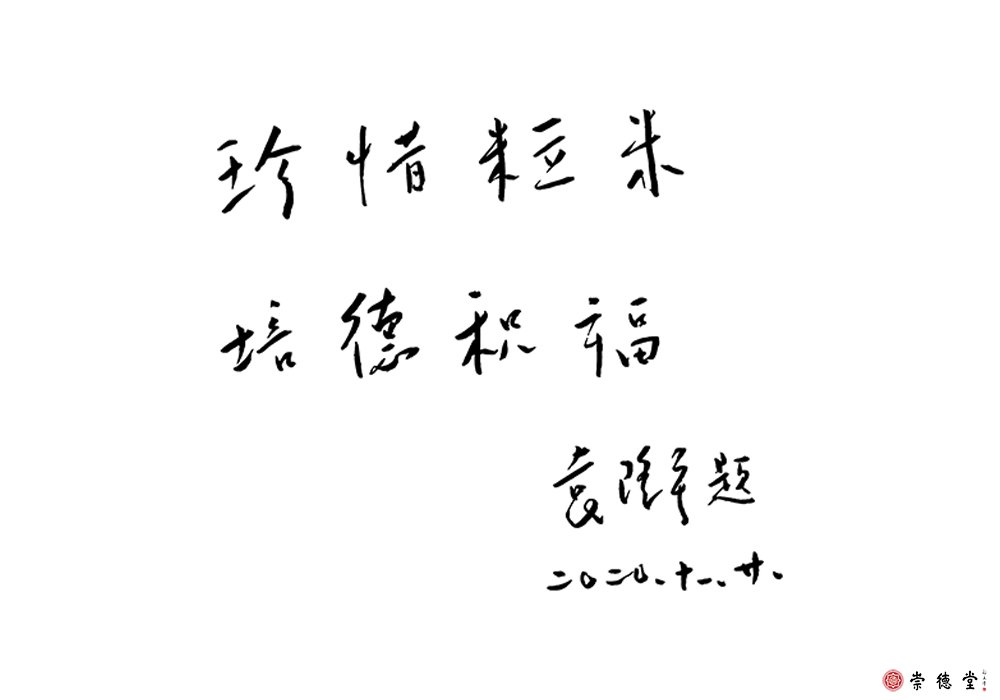 珍惜粒米
培德积福
袁隆平题
二〇二〇.十一.廿.
崇德堂